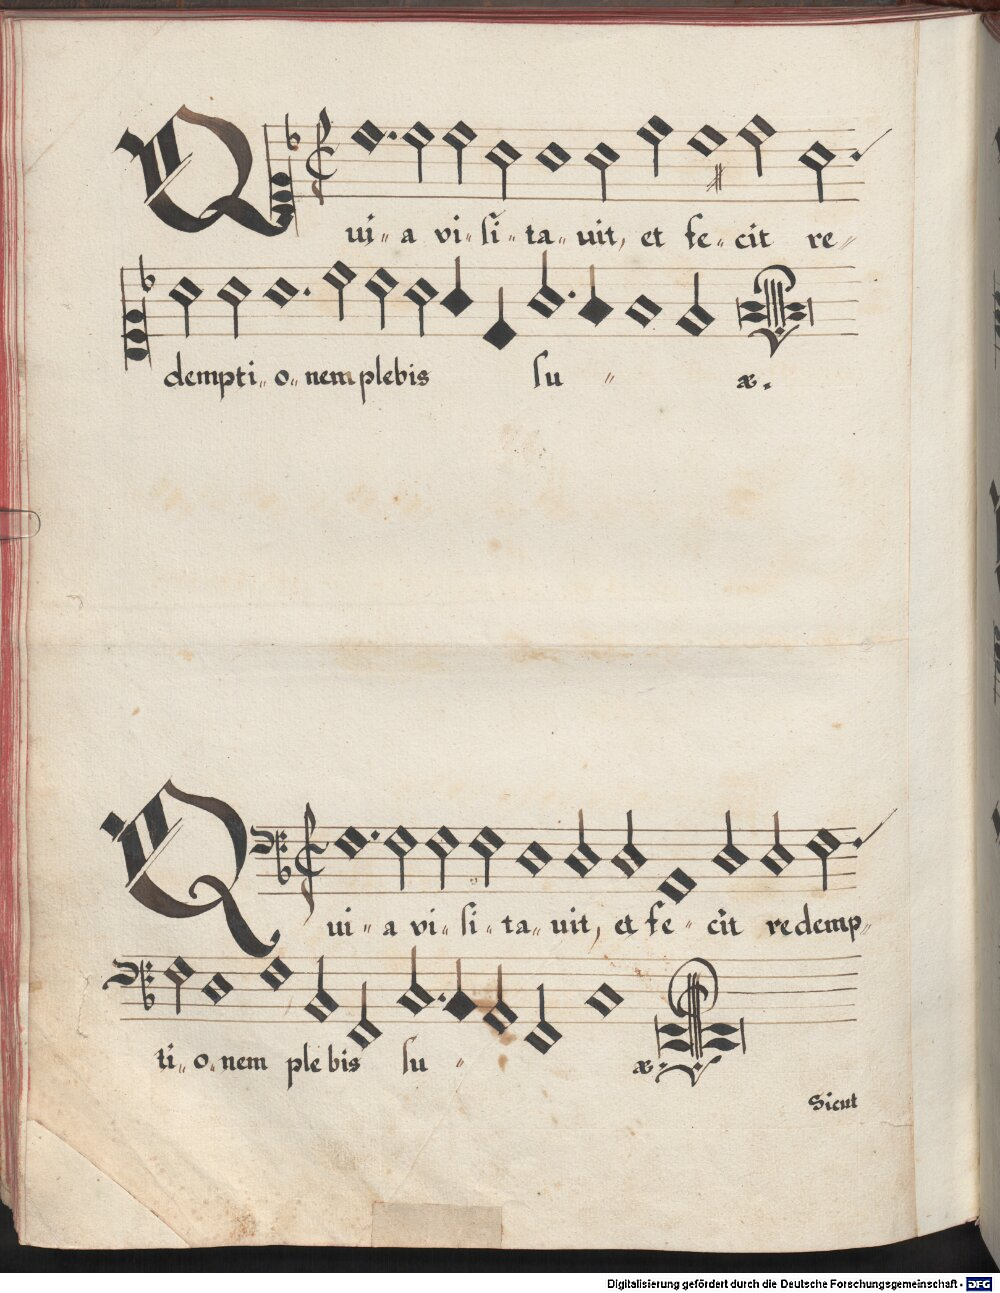 Qui〃a vi〃si〃ta〃uit, et fe〃cit re〃
dempti〃o〃nem plebis su〃æ.
Qui〃a vi〃si〃ta〃uit, et fe〃cit redemp〃
ti〃o〃nem plebis su〃æ.
Sicut
Digitalisierung gefördert durch die Deutsche Forschungsgemeinschaft - DFG